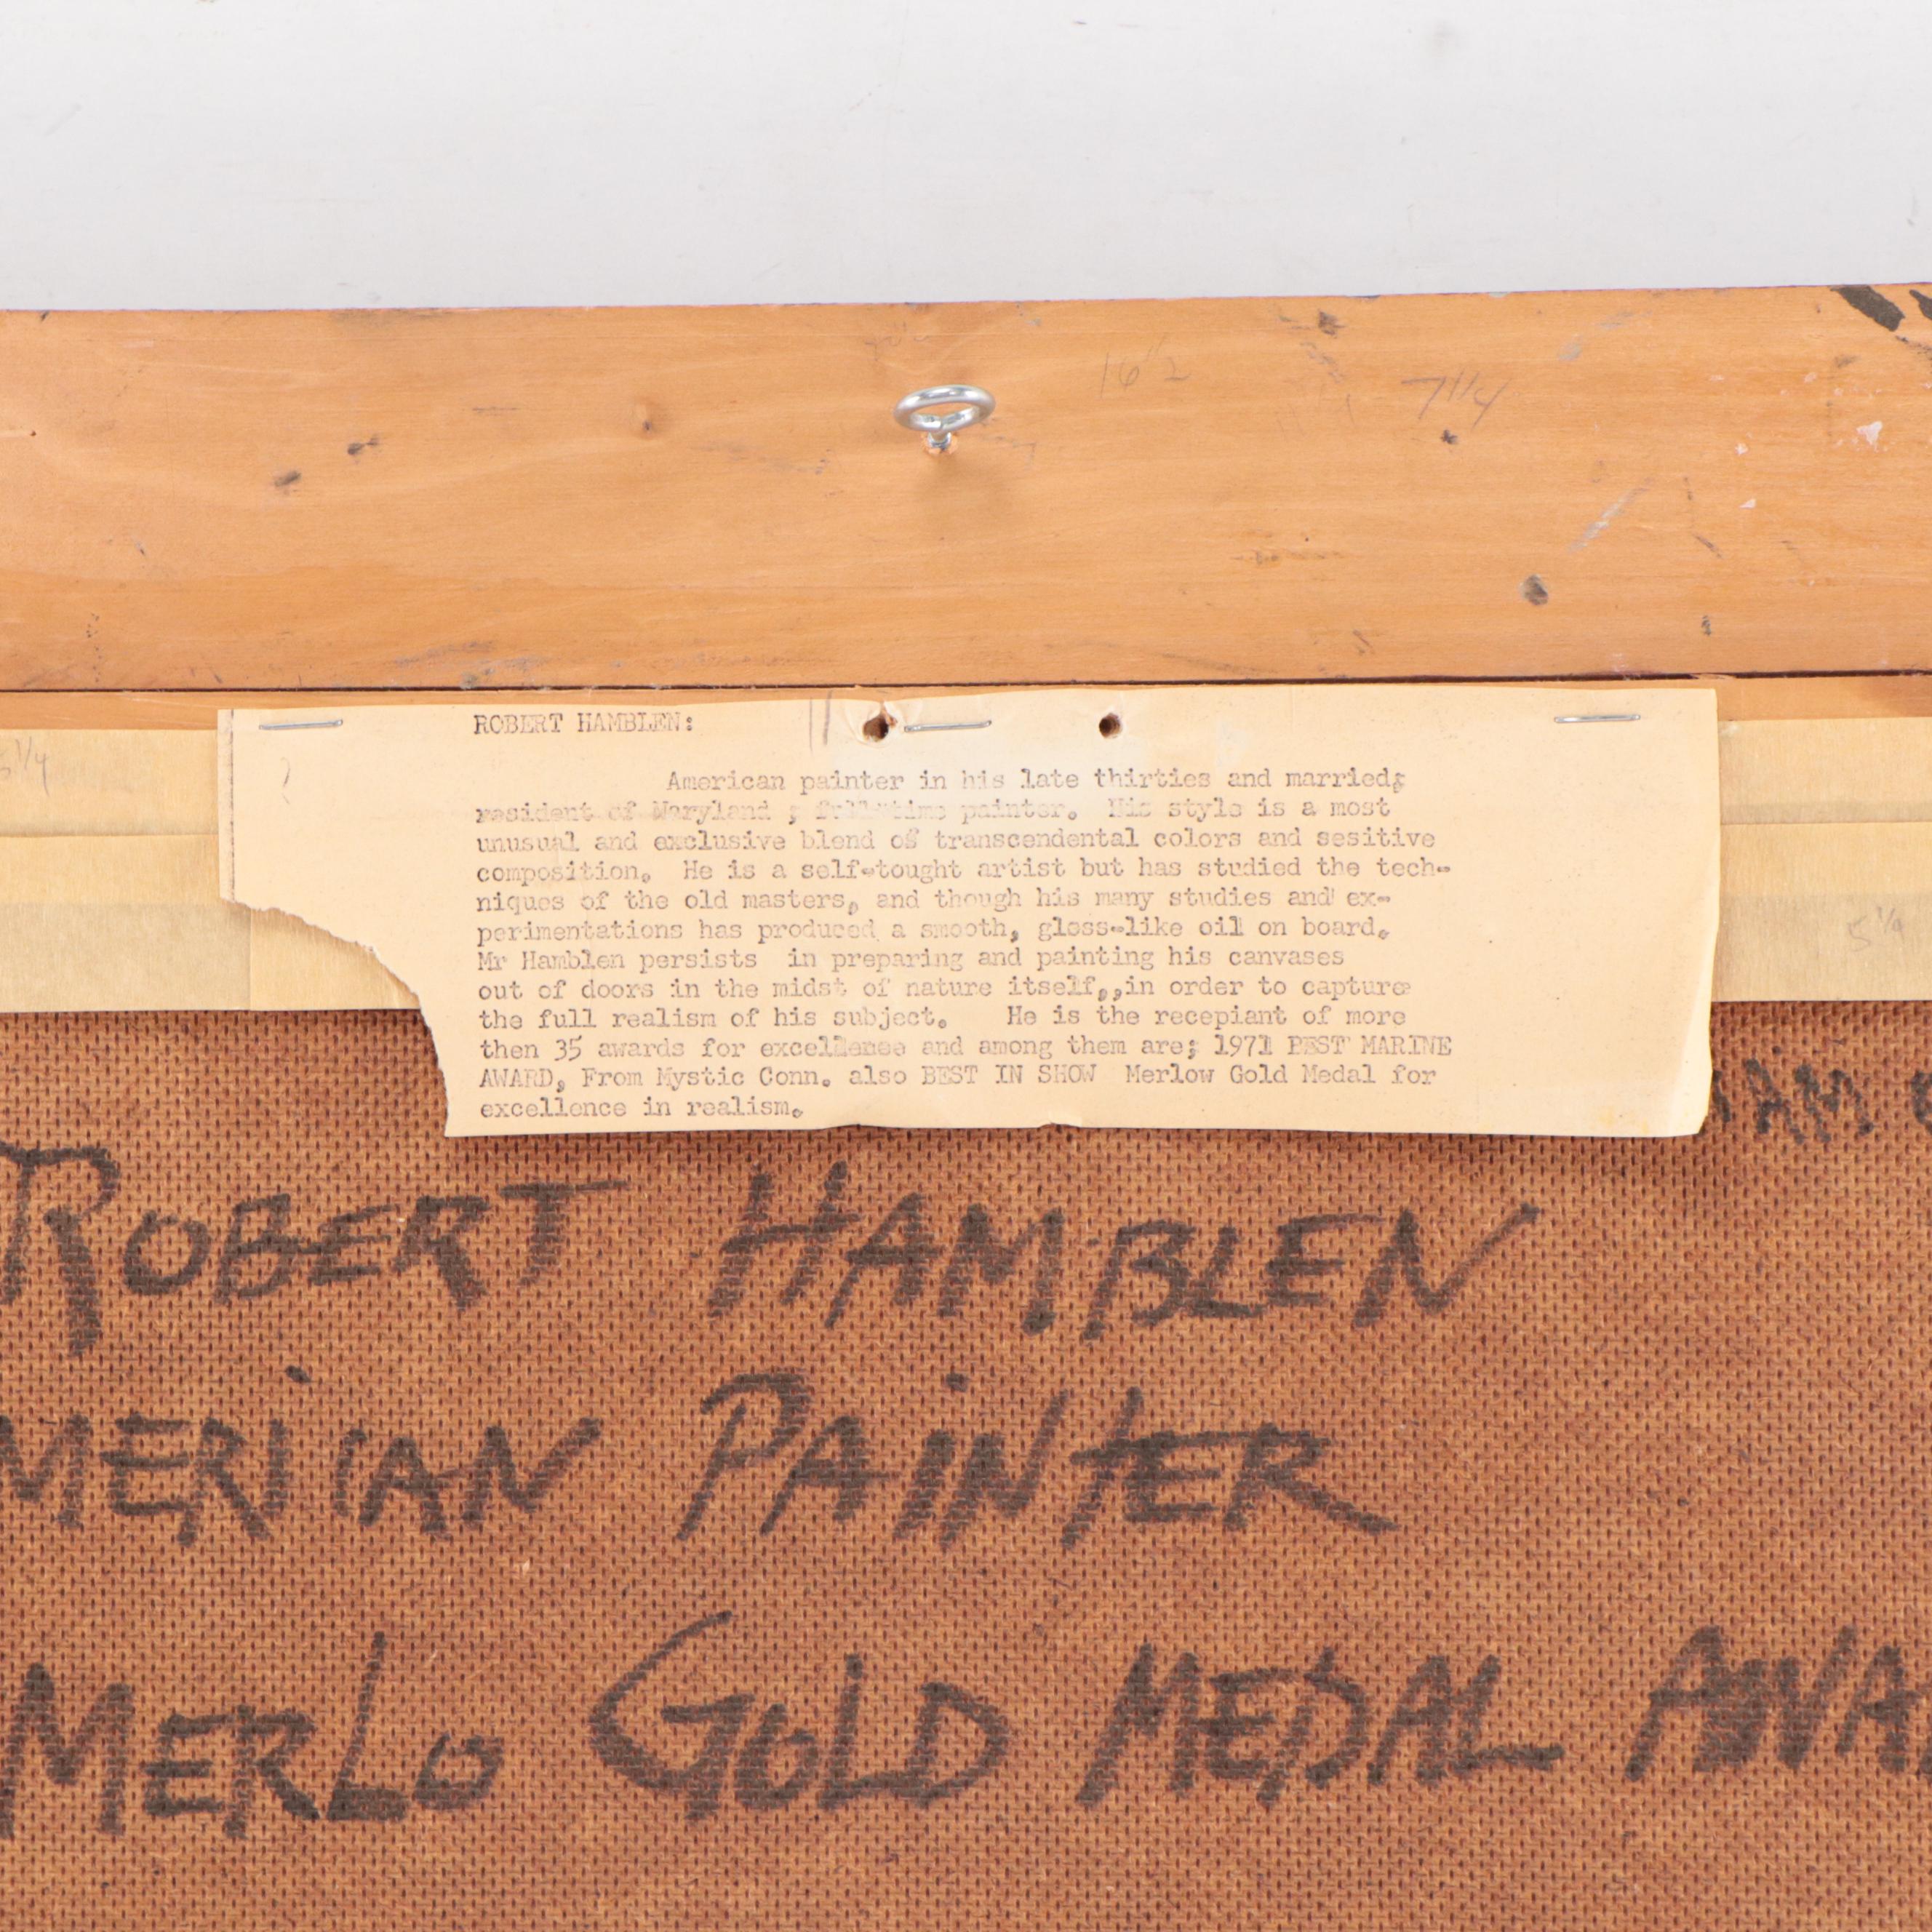 16 1/2
7 1/4
ROBERT HAMBLEN:
American painter in his late thirties and married;
resident of Maryland ; full-time painter. His style is a most
unusual and exclusive blend of transcendental colors and sesitive
composition. He is a self-tought artist but has studied the tech-
niques of the old masters, and though his many studies and ex-
perimentations has produced a smooth, gloss-like oil on board.
Mr Hamblen persists in preparing and painting his canvases
out of doors in the midst of nature itself,,in order to capture
the full realism of his subject. He is the recepiant of more
then 35 awards for excellence and among them are; 1971 BEST MARINE
AWARD, From Mystic Conn. also BEST IN SHOW Merlow Gold Medal for
excellence in realism.
5 1/4
5 1/4
ROBERT HAMBLEN
MERICAN PAINTER
MERLO GOLD MEDAL AWA